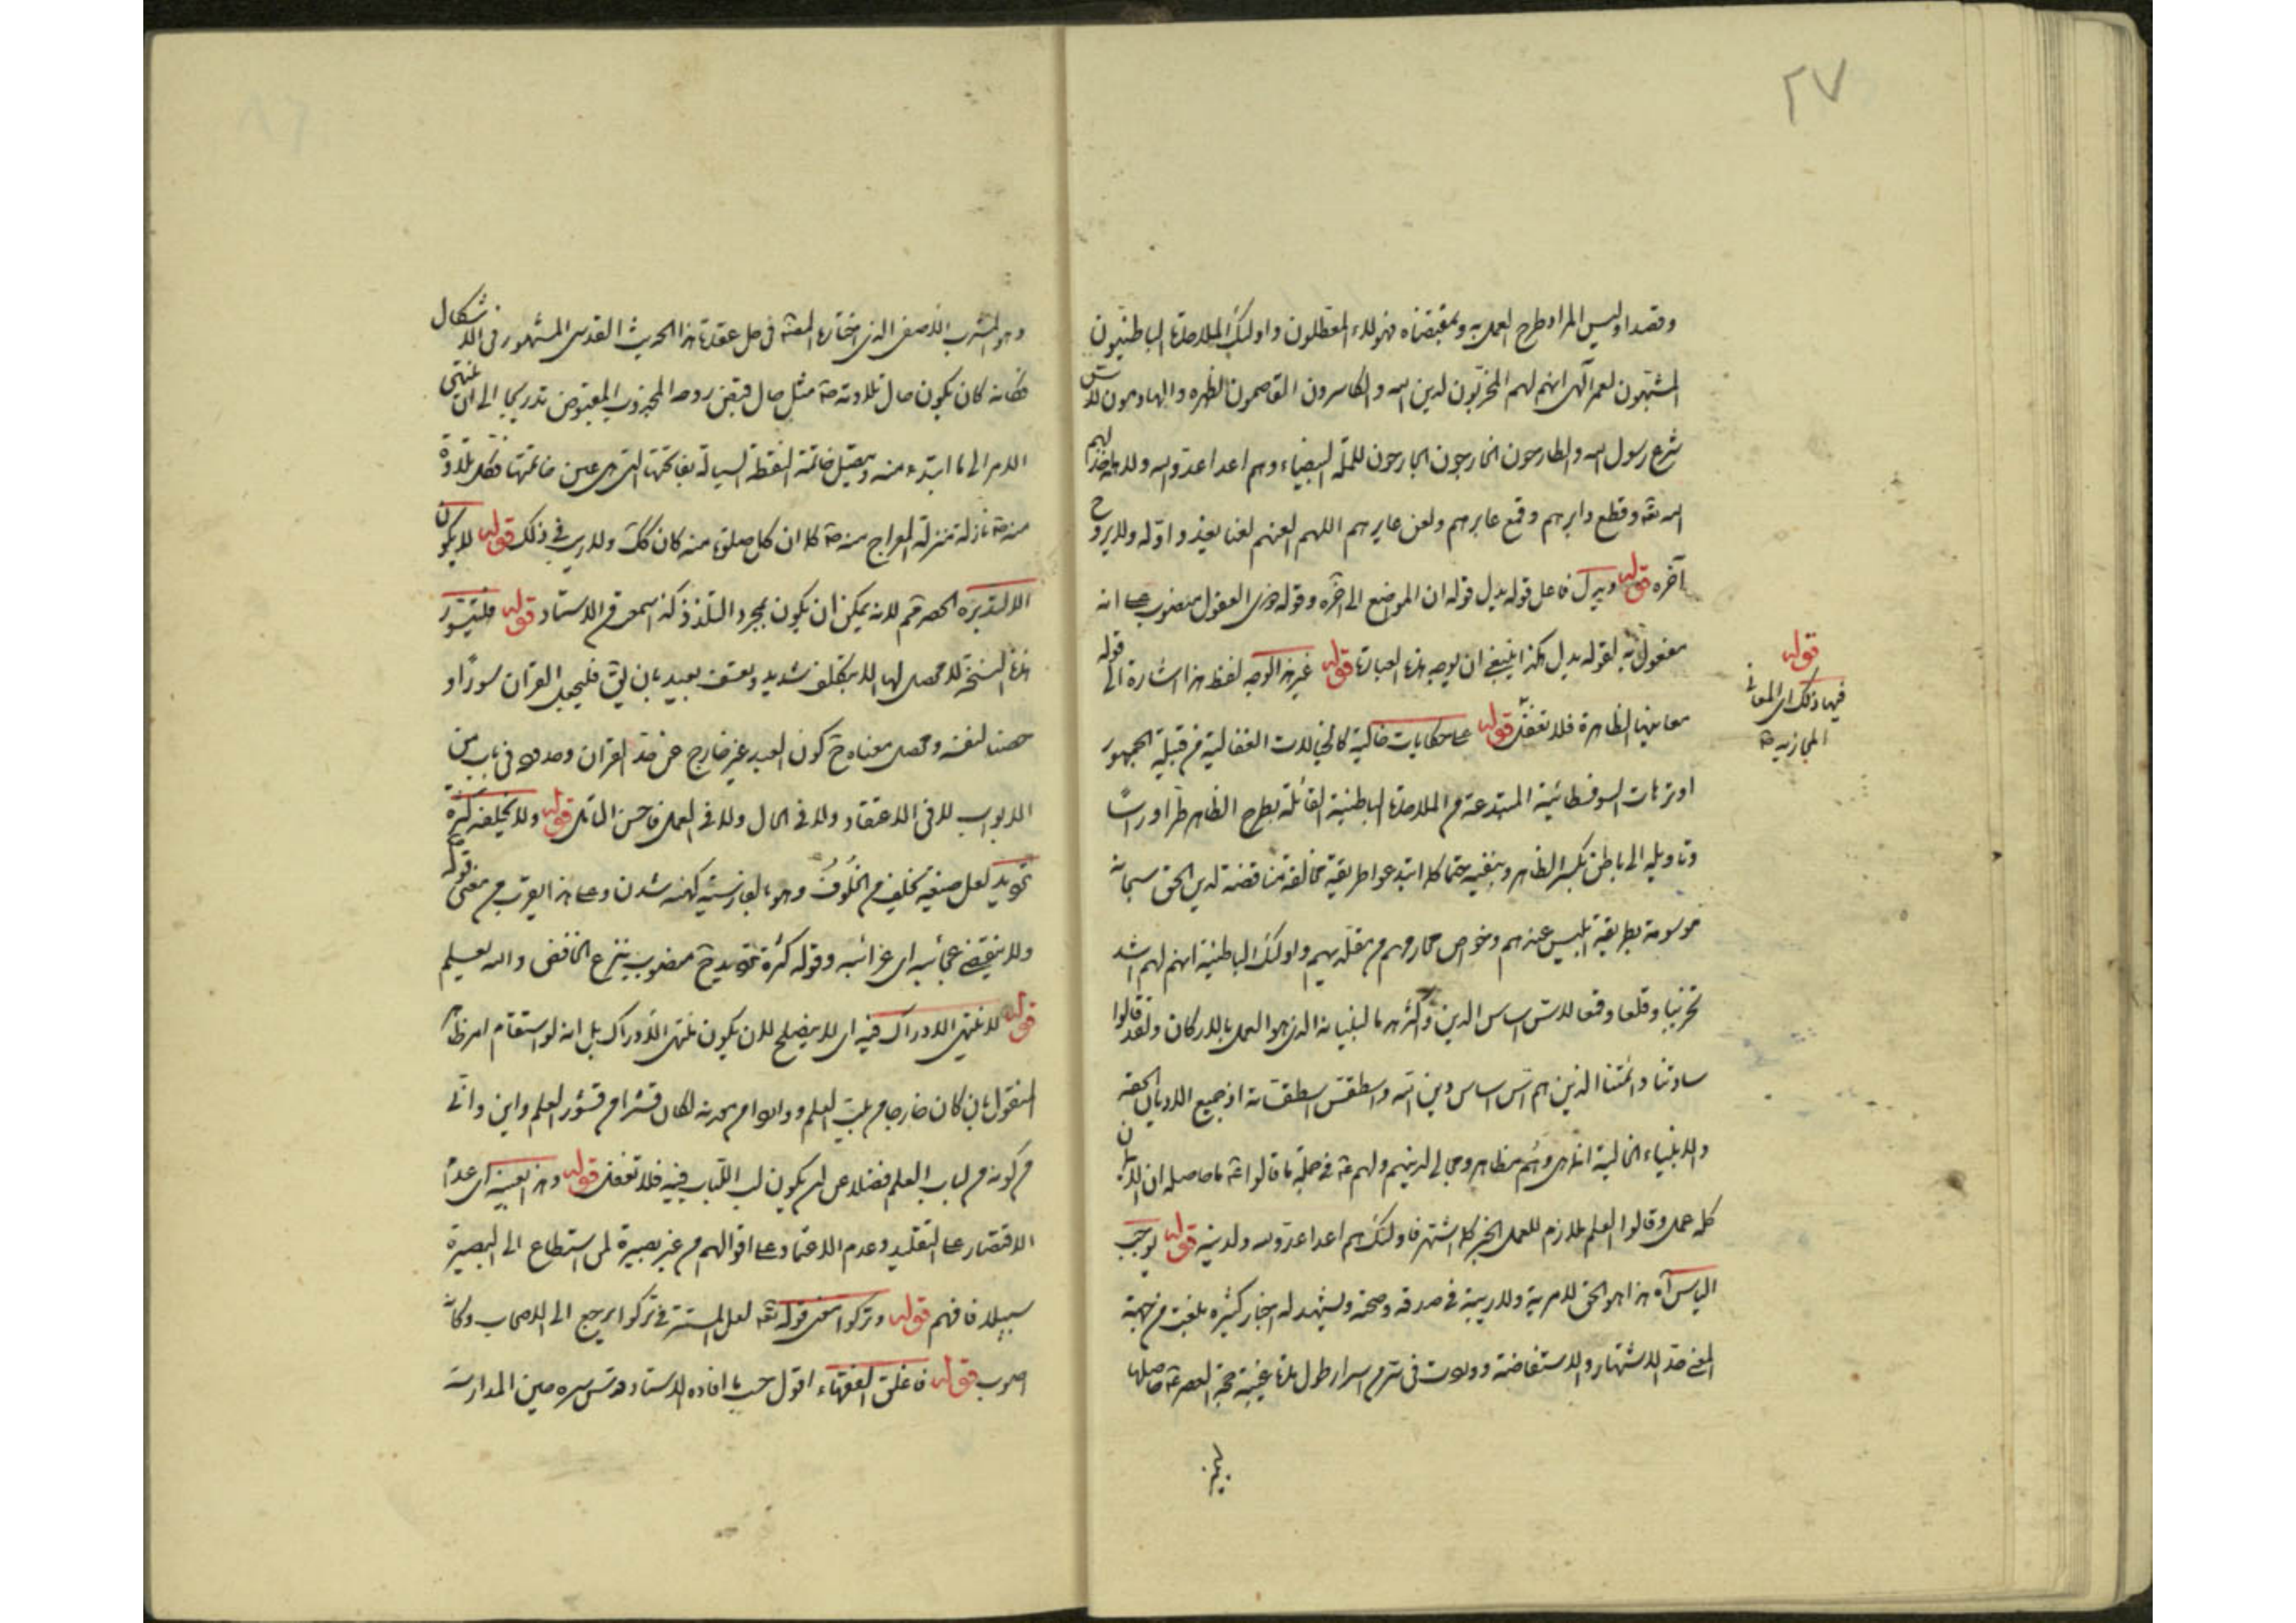 ٢٧
وقصدا وليس المراد طرح العمل به وبمقتضاه فهؤلاء المعطلون واولئك الملاحدة الباطنيون
المشبهون لعمر الهى انهم لهم المخربون لدين الله والكاسرون القاصمون لظهره والهادمون لاس
شرع رسول الله والطارحون الخارجون الجارحون للملة البيضاء وهم اعدا عدو الله ولاهله خذلهم
الله تعه وقطع دابرهم وقمع عابرهم ولعن عابرهم اللهم العنهم لعنا يغدو اوله ولا يروح
آخره قوله ويدل فاعل قوله يدل قوله ان المواضع الى آخره وقوله ذوى العقول منصوب على انه
مفعول به لقوله يدل هكذا ينبغى ان يوجه هذه العبارة قوله غير هذا الوجه لفظ هذا اشارة الى قوله
معانيها الظاهرة فلا تغفل قوله على حكايات خالية كالخيالات الفعالية من قبيلة الجمهور
او ترهات السوفسطائية المبتدعة من الملاحدة الباطنية القائلة بطرح الظاهر طرا وراسا
وتاويله الى باطن يكسر الظاهر وينفيه حتما كلا ابتدعوا طريقة مخالفة مناقضة لدين الحق سبحانه
موسومة بطريقة ابليس عندهم وخواص محارمهم من مقلديهم واولئك الباطنية انهم لهم اشد
تخريبا وقلعا وقمعا لاس اساس الدين واكثر هدما لبنيانه الذى هو العمل بالاركان ولقد قالوا
ساداتنا وائمتنا الذين هم اس اساس دين الله واسطقس اسطقساته اذ جميع الاديان الحقة
والانبياء الخالية انما هى وهم مظاهر ومجالى لدينهم ولهم عه فى جملة ما قالوا عه ما حاصله ان الايمان
كله عمل وقالوا العلم ملازم للعمل الخبر كله اشتهر فاولئك هم اعدا عدو الله ولدينه قوله يوجب
الياس آه هذا هو الحق لا مرية ولا ريبة فى صدقه وصحته ويشهد له اخبار كثيرة بلغت من جهة
المعنى حد الاشتهار والاستفاضة ووردت فى شرح اسرار طول مدة غيبة حجة العصر عه حاصلها
قوله
فيها ذلك اى المعانى
المجازية
وهو المشرب الاصفى الذى اختاره المص فى حل عقدة هذا الحديث القدسى المشهور فى الاشكال
فكانه كان يكون حال تلاوته مثل حال قبض روحه المجذوب المقبوض تدريجا الى ان ينتهى
الامر الى ما ابتدء منه ويتصل خاتمة النقطة السيالة بفاتحتها التى هى عين خاتمتها فكل تلاوة
منه نازلة منزلة المعراج منه كلا ان كل صلوة منه كان كك ولا ريب فى ذلك قوله لا يكون
الا لتدبره الحصر ثم لانه يمكن ان يكون بمجرد التلذذ كذا سمع من الاستاد قوله فليتسور
هذه النسخة لا محصل لها الا بتكلف شديد وتعسف بعيد بان يق فليجعل القران سورا و
حصنا لنفسه ومحصل معناه ح كون العبد غير خارج عن حد القران وحدوده فى باب من
الابواب لا فى الاعتقاد ولا فى الحال ولا فى العمل فاحسن التامل قوله ولا يخلفه كثرة
ترديد لعل صيغة يخلف من الخلوف وهو بالفارسية كهنه شدن وعلى هذا يقرب من معنى قوله
ولا ينقضى عجائبه اى غرائبه وقوله كثرة ترديد ح منصوب بنزع الخافض والله يعلم
قوله لا منتهى الادراك فيه اى لا يصلح لان يكون منتهى الادراك بل انه لو استقام امر ظاهر
المنقول بان كان خارجا من بيت العلم ودائرا من معدنه لكان قشرا من قشور العلم واين وانى
من كونه من لباب العلم فضلا عن ان يكون لب اللباب فيه فلا تغفل قوله وهذا بعينه اى عدم
الاقتصار على التقليد وعدم الاعتماد على اقوالهم من غير بصيرة لمن استطاع الى البصيرة
سبيلا فافهم قوله وتركوا معنى قوله تعه لعل المستتر فى تركوا يرجع الى الاصحاب وكانه
اصوب قوله فاغلق الفقهاء اقول حسب ما افاده الاستاد قدس سره حين المدارسة